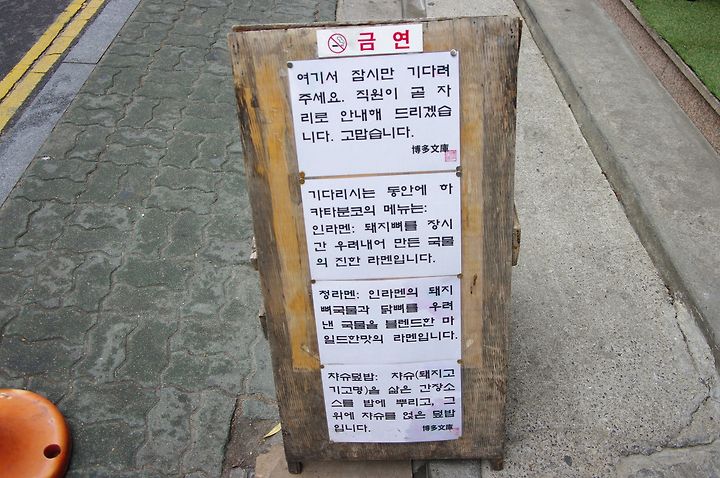 금연
여기서 잠시만 기다려
주세요. 직원이 곧 자
리로 안내해 드리겠습
니다. 고맙습니다.
博多文庫
기다리시는 동안에 하
카타분코의 메뉴는:
인라멘: 돼지뼈를 장시
간 우려내어 만든 국물
의 진한 라멘입니다.
청라멘: 인라멘의 돼지
뼈국물과 닭뼈를 우려
낸 국물을 블렌드한 마
일드한맛의 라멘입니다.
챠슈덮밥: 챠슈(돼지고
기고명)을 삶은 간장소
스를 밥에 뿌리고, 그
위에 챠슈를 얹은 덮밥
입니다.
博多文庫